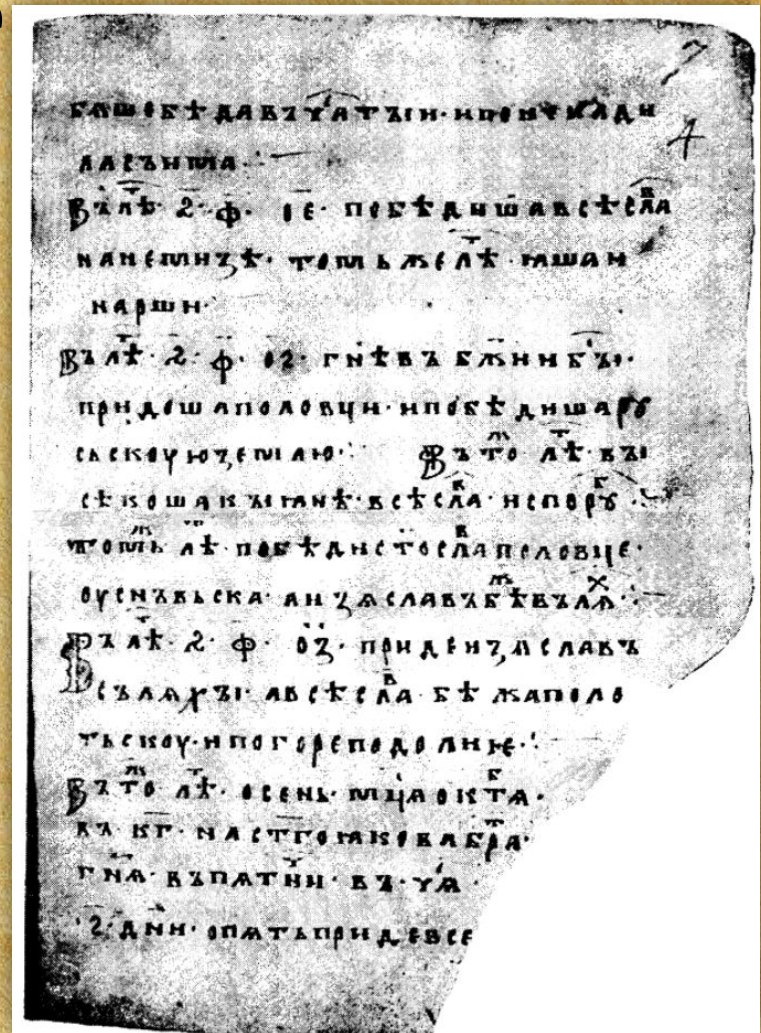 бѧшебѣдавъчⷭ҇атъıи·ипоникади
ласъима·:
Въ лѣⷮ·ѕ҃·ф҃·о҃е· побѣдишавсѣсⷡла
нанемизѣ· томьжелѣⷮ· ꙗшаи
нарши·
Въ лѣⷮ·ѕ҃·ф҃·о҃ѕ· гн҃ѣвъ бж҃ии бъı·
придошаполовци·ипобѣдишарꙋ
сьскоуюземлю·: Въ тоⷤ лѣⷮ· въı
сѣкошакъıꙗнѣ·всѣсⷡла·испорꙋⷠ·:
томьⷤ лѣⷮ·побѣдис҃тосⷡлаполовце·
оуснъвьска·аизѧславъбѣⷤвълѧⷯ·:
Въ лѣⷮ·ѕ҃·ф҃·о҃з· придеизѧславъ
съ лѧхъı·авсѣсⷡла·бѣжаполо
тьскоу·ипогореподолиѥ·:
Въ тоⷤ лѣⷮ·осень·мц҃аоктѧⷠ·
въ·к҃г·наст҃гоꙗковабраⷮ·
гн҃ѧ·въпѧтⷩии·въ·чⷭѧ
·ѕ҃·дн҃и·опѧтьпридевсе